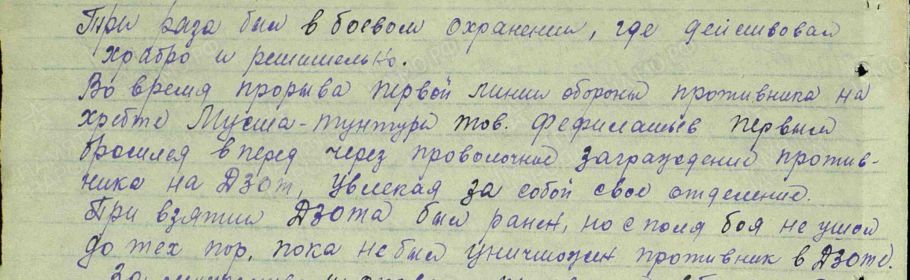 Три раза был в боевом охранении, где действовал
храбро и решительно.
Во время прорыва первой линии обороны противника на
хребте Муста-Тунтури тов. Фефилатьев первым
бросился вперед через проволочное заграждение против-
ника на ДЗОТ, увлекая за собой свое отделение.
При взятии ДЗОТа был ранен, но с поля боя не ушел
до тех пор, пока не был уничтожен противник в ДЗОТе.